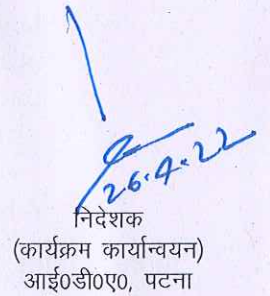 26.4.22
निदेशक
(कार्यक्रम कार्यान्वयन)
आई0डी0ए0, पटना